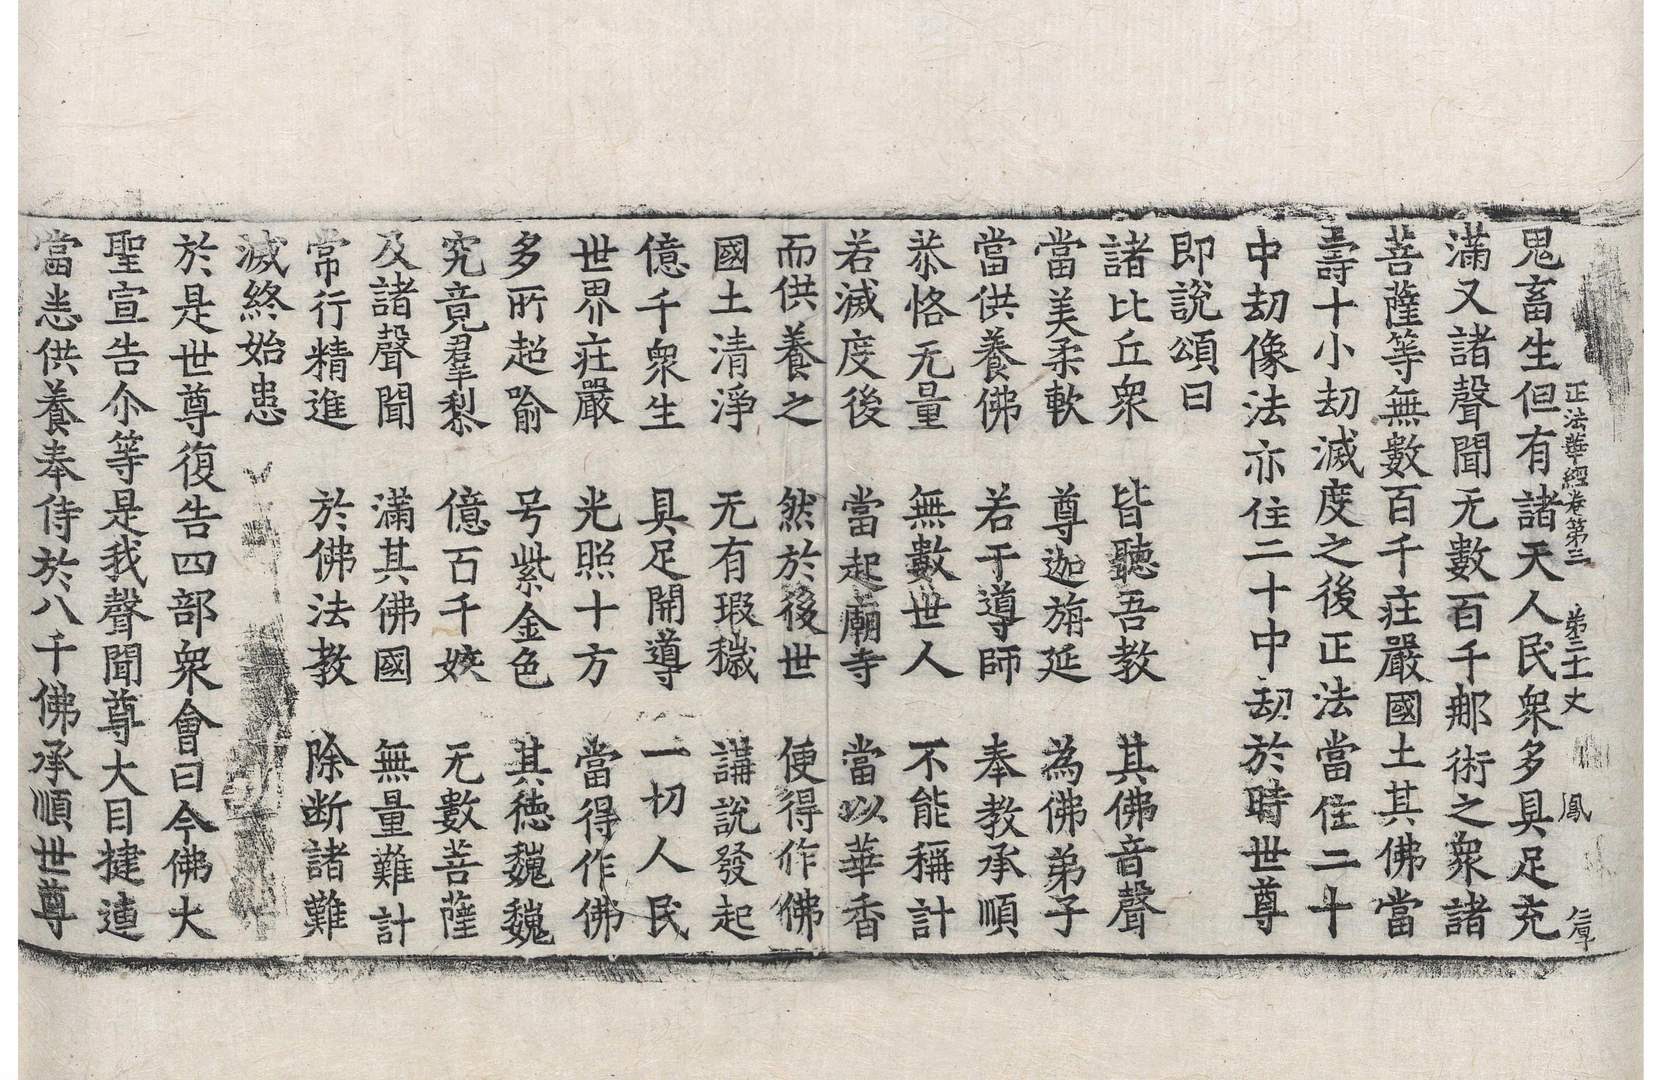 正法華經卷第三 第二十丈 鳳
鬼畜生但有諸天人民衆多具足充
滿又諸聲聞无數百千那術之衆諸
菩薩等無數百千庄嚴國土其佛當
壽十小刧滅度之後正法當住二十
中刧像法亦住二十中刧於時世尊
即説頌曰
諸比丘衆 皆聽吾教 其佛音聲
當美柔軟 尊迦旃延 為佛弟子
當供養佛 若干導師 奉教承順
恭恪无量 無數世人 不能稱計
若滅度後 當起廟寺 當以華香
而供養之 然於後世 便得作佛
國土清淨 无有瑕穢 講説發起
億千衆生 具足開導 一切人民
世界庄嚴 光照十方 當得作佛
多所超喻 号紫金色 其德巍巍
究竟羣黎 億百千姟 无數菩薩
及諸聲聞 滿其佛國 無量難計
常行精進 於佛法教 除断諸難
滅終始患
於是世尊復告四部衆會曰今佛大
聖宣告尒等是我聲聞尊大目揵連
當恚供養奉侍於八千佛承順世尊